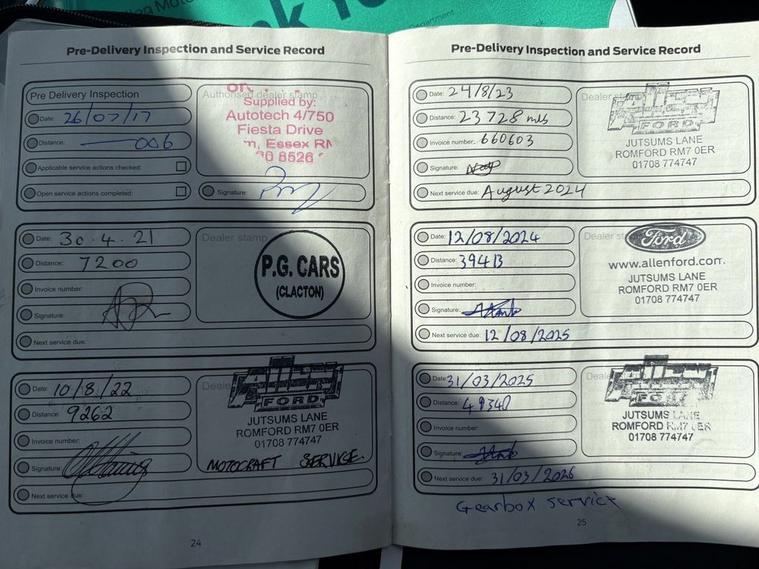 Pre-Delivery Inspection and Service Record
Pre Delivery Inspection
Authorised dealer stamp
Date: 26/07/17
Distance: 006
Applicable service actions checked:
Open service actions completed:
Supplied by:
Autotech 4/750
Fiesta Drive
Essex
8526
Signature:
Date: 30.4.21
Distance: 7200
Invoice number:
Signature:
Next service due:
Dealer stamp
P.G. CARS
(CLACTON)
Date: 10/8/22
Distance: 9262
Invoice number:
Signature:
Next service due:
Dealer
FORD
JUTSUMS LANE
ROMFORD RM7 0ER
01708 774747
MOTOCRAFT SERVICE.
24
Pre-Delivery Inspection and Service Record
Date: 24/8/23
Distance: 23728 mls
Invoice number: 660603
Signature:
Next service due: August 2024
Dealer
FORD
JUTSUMS LANE
ROMFORD RM7 0ER
01708 774747
Date: 12/08/2024
Distance: 39413
Invoice number:
Signature:
Next service due: 12/08/2025
Dealer
Ford
www.allenford.com
JUTSUMS LANE
ROMFORD RM7 0ER
01708 774747
Date: 31/03/2025
Distance: 49340
Invoice number:
Signature:
Next service due: 31/03/2026
JUTSUMS LANE
ROMFORD RM7 0ER
01708 774747
Gearbox service
25